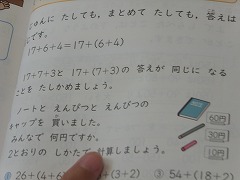 じゅんに たしても、まとめて たしても、答えは
です。
17+6+4=17+(6+4)
17+7+3と 17+(7+3)の 答えが 同じに なる
ことを たしかめましょう。
ノートと えんぴつと えんぴつの
キャップを 買いました。
みんなで 何円ですか。
2とおりの しかたで 計算しましょう。
60円
30円
10円
26+(4+6
+(3+2)
③ 54+(18+2)